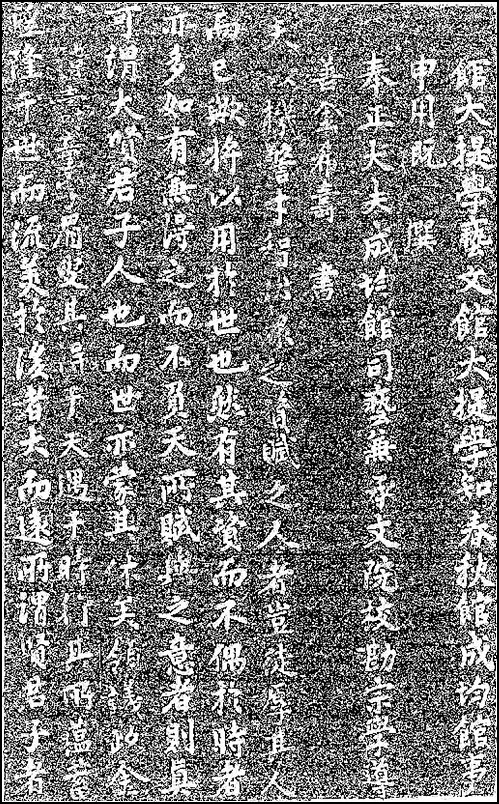 館大提學藝文館大提學知春秋館成均館事
申用漑 撰
奉正大夫成均館司藝兼承文院校勘宗學導
善金希壽 書
天以機警才智 之資賦之人者豈徒厚其人
而已歟將以用於世也然有其資而不偶於時者
亦多如有無得之而不負天所賦與之意者則眞
可謂大賢君子人也而世亦蒙其休矣領議政金
其得于天遇于時行其所蘊
隆于世而流美於後者大而遠所謂賢君子者